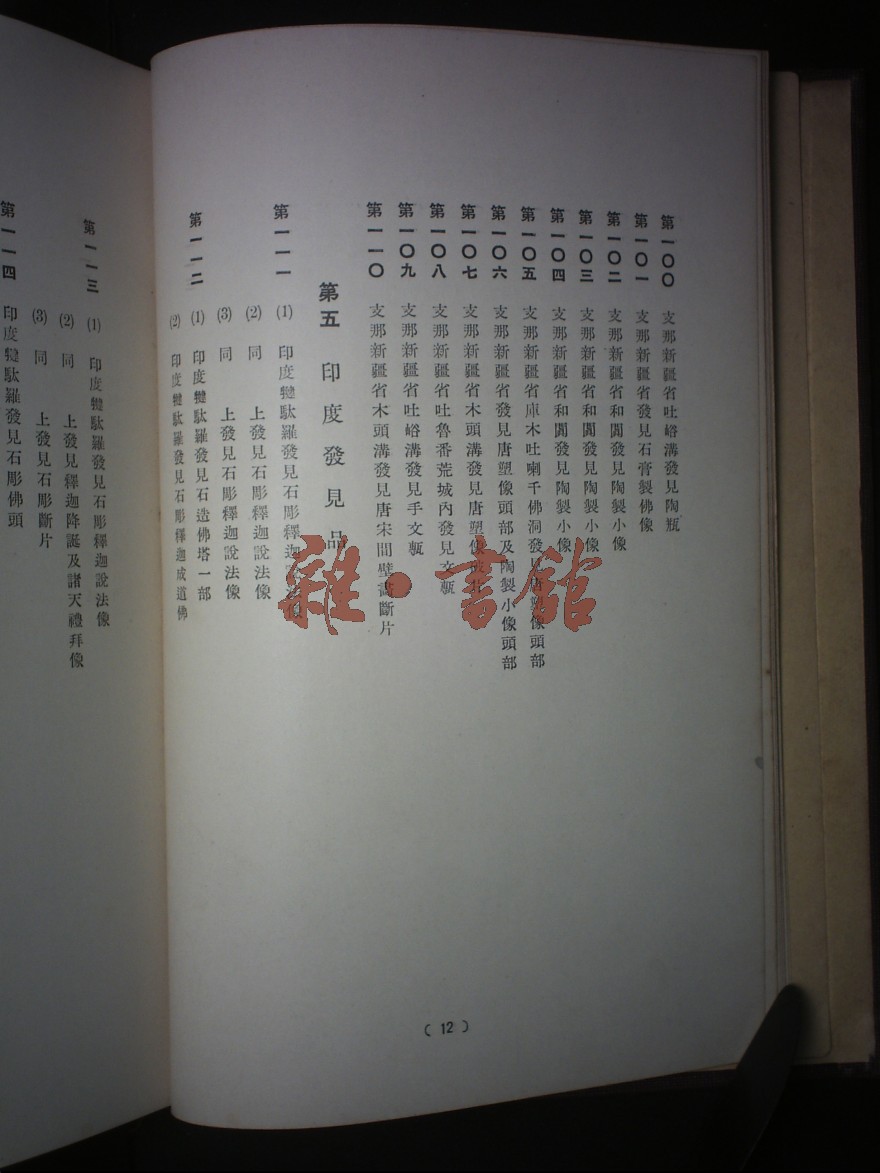 第一〇〇 支那新疆省吐峪溝發見陶瓶
第一〇一 支那新疆省發見石膏製佛像
第一〇二 支那新疆省和闐發見陶製小像
第一〇三 支那新疆省和闐發見陶製小像
第一〇四 支那新疆省和闐發見陶製小像
第一〇五 支那新疆省庫木吐喇千佛洞發見唐塑像頭部
第一〇六 支那新疆省發見唐塑像頭部及陶製小像頭部
第一〇七 支那新疆省木頭溝發見唐塑像
第一〇八 支那新疆省吐魯番荒城內發見文甎
第一〇九 支那新疆省吐峪溝發見手文甎
第一一〇 支那新疆省木頭溝發見唐宋間壁畫斷片
第五 印度發見品
第一一一 (1) 印度犍馱羅發見石彫釋迦說法像
(2) 同 上發見石彫釋迦說法像
(3) 同 上發見石彫釋迦說法像
第一一二 (1) 印度犍馱羅發見石造佛塔一部
(2) 印度犍馱羅發見石彫釋迦成道佛
(12)
第一一三 (1) 印度犍馱羅發見石彫釋迦說法像
(2) 同 上發見釋迦降誕及諸天禮拜像
(3) 同 上發見石彫斷片
第一一四 印度犍馱羅發見石彫佛頭
雜·書館